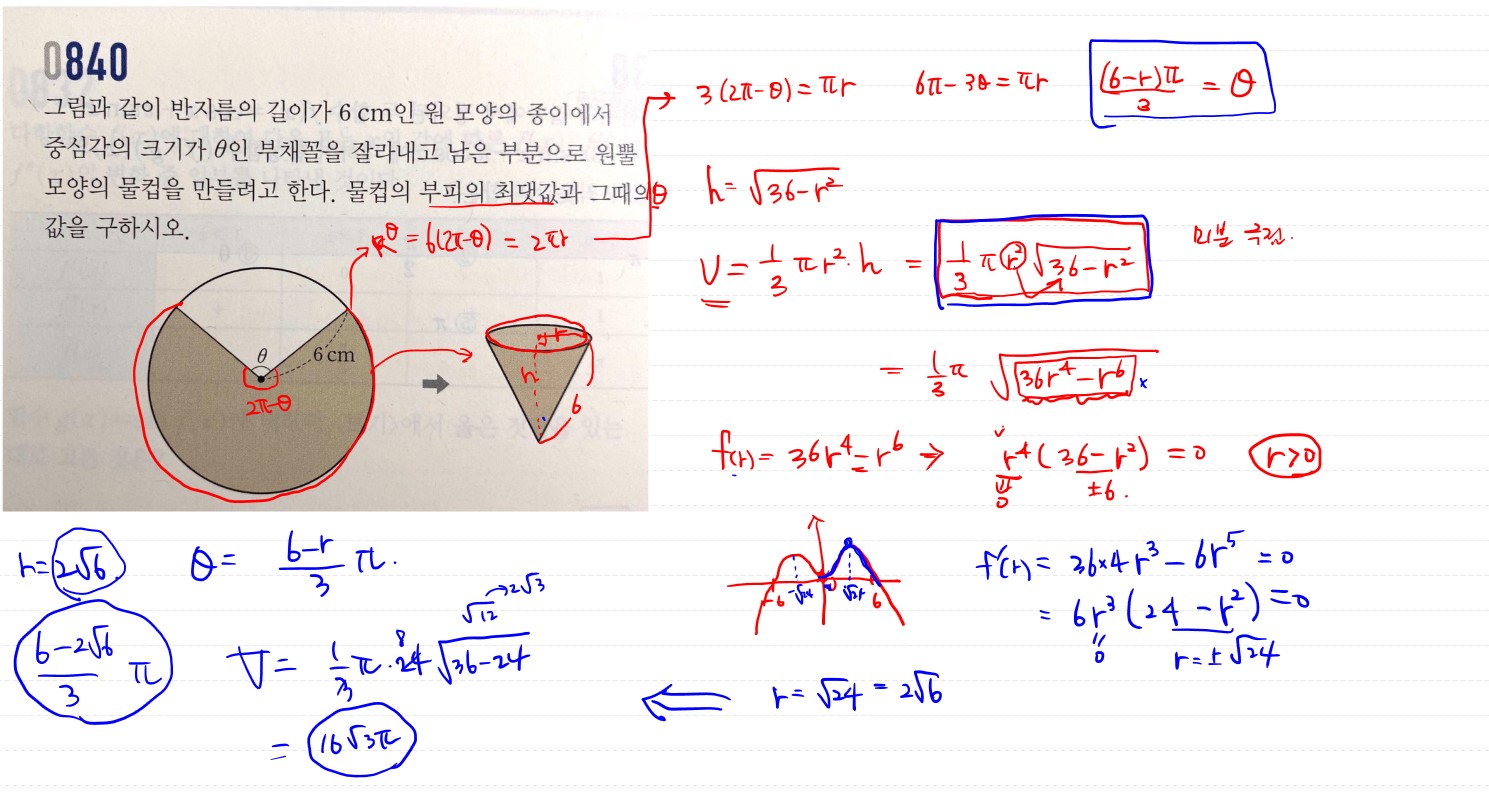 0840
그림과 같이 반지름의 길이가 6 cm인 원 모양의 종이에서
중심각의 크기가 θ인 부채꼴을 잘라내고 남은 부분으로 원뿔
모양의 물컵을 만들려고 한다. 물컵의 부피의 최댓값과 그때의 θ
값을 구하시오.
Rθ = 6(2π-θ) = 2πr
θ
6 cm
2π-θ
r
h
6
3(2π-θ) = πr 6π-3θ = πr (6-r)π/3 = θ
h = √(36-r²)
V = 1/3 πr²·h = 1/3 π r² √(36-r²) 미분
= 1/3 π √(36r⁴-r⁶)
f(r) = 36r⁴-r⁶ → r⁴(36-r²) = 0 r>0
0 ±6.
-6 -√24 0 √24 6
f'(r) = 36×4r³ - 6r⁵ = 0
= 6r³(24-r²) = 0
0 r = ±√24
r = √24 = 2√6
r = 2√6 θ = 6-r/3 π.
6-2√6/3 π V = 1/3 π·24 √(36-24)
8 √12 → 2√3
= 16√3π